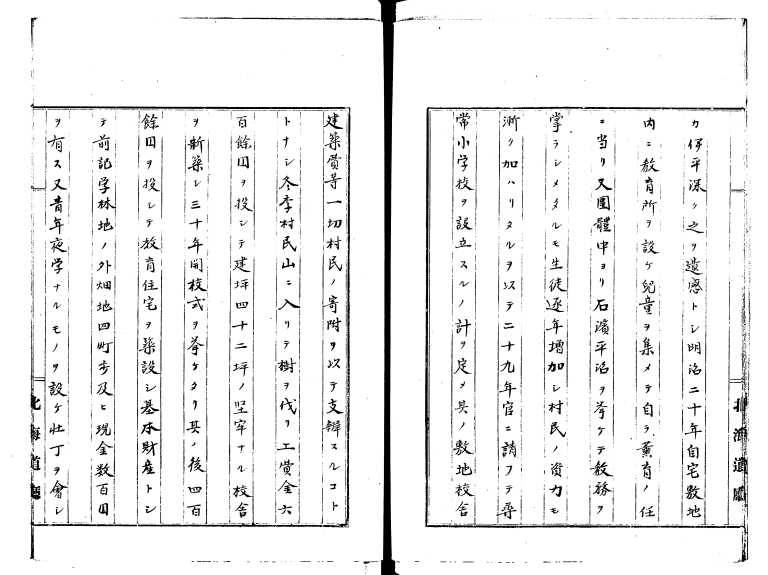 カ伊平深ク之ヲ遺感トシ明治二十年自宅敷地
内ニ教育所ヲ設ケ兒童ヲ集メテ自ラ薫育ノ任
ニ当リ又團體中ヨリ石濱平治ヲ挙ケテ教務ヲ
掌ラシメタルモ生徒逐年増加シ村民ノ資力モ
漸ク加ハリタルヲ以テ二十九年官ニ請フテ尋
常小学校ヲ設立スルノ計ヲ定メ其ノ敷地校舎
北海道廳
建築費等一切村民ノ寄附ヲ以テ支辨スルコト
トナシ冬季村民山ニ入リテ樹ヲ伐リ工賞金六
百餘円ヲ投シテ建坪四十二坪ノ堅牢ナル校舎
ヲ新築シ三十年開校式ヲ挙ケタリ其ノ後四百
餘円ヲ投シテ教育住宅ヲ築設シ基本財産トシ
テ前記学林地ノ外畑地四町歩及ヒ現金数百円
ヲ有ス又青年夜学ナルモノヲ設ケ壮丁ヲ會シ
北海道廳